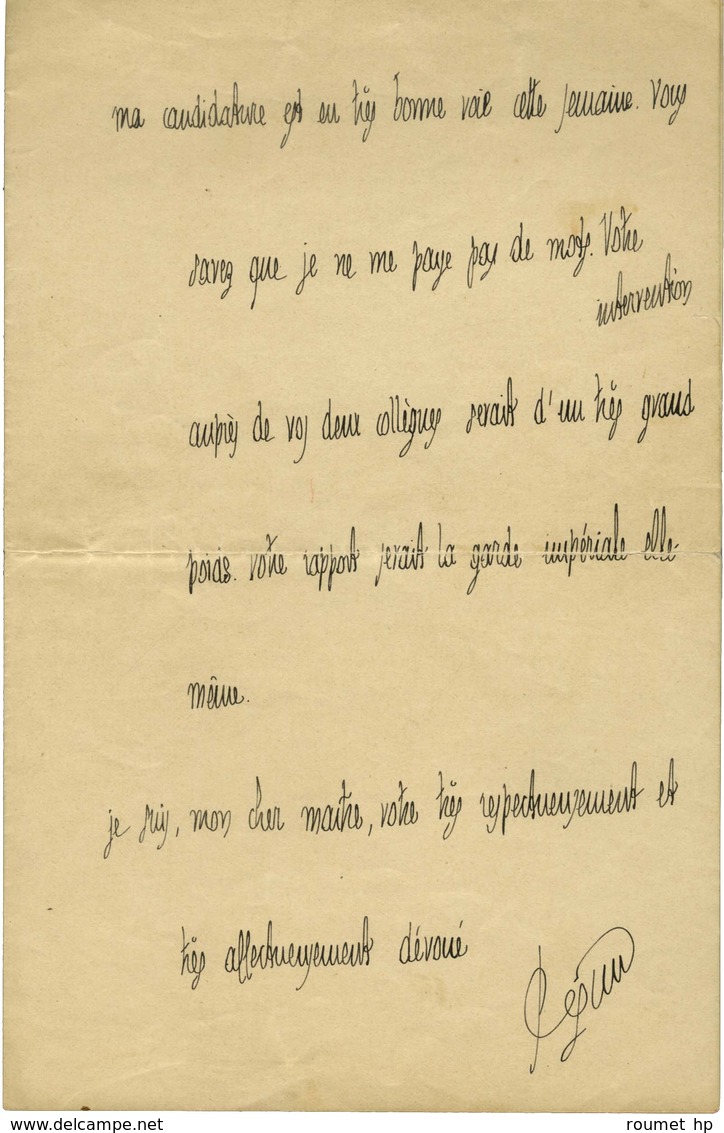 ma candidature est en très bonne voie cette semaine. Vous
savez que je ne me paye pas de mots. Votre
intervention
auprès de vos deux collègues serait d'un très grand
poids. votre rapport serait la garde impériale elle-
même.
je suis, mon cher maître, votre très respectueusement et
très affectueusement dévoué
Péguy
roumet hp
www.delcampe.net